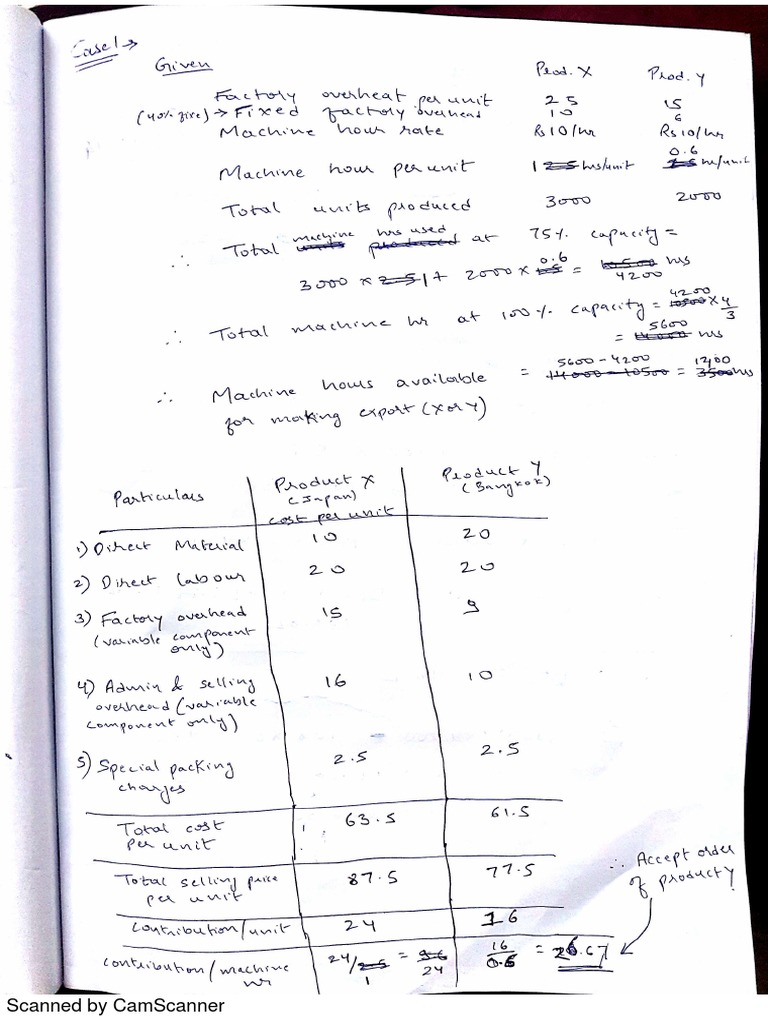 Case 1 →
Given
Prod. X Prod. Y
Factory overheat per unit 25 15
(40% fixe) → Fixed factory overhead 10 6
Machine hour rate Rs 10/hr Rs 10/hr
Machine hour per unit 1 2.5 hrs/unit 0.6 1.5 hr/unit
Total units produced 3000 2000
∴ Total units produced machine hrs used at 75% capacity =
3000 × 2.5 1 + 2000 × 1.5 0.6 = 10500 4200 hrs
∴ Total machine hr at 100% capacity = 10500 4200 × 4/3
= 14000 5600 hrs
∴ Machine hours available = 14000 - 10500 5600 - 4200 = 3500 1400 hrs
for making export (X or Y)
Particulars Product X (Japan) Product Y (Bangkok)
cost per unit
1) Direct Material 10 20
2) Direct labour 20 20
3) Factory overhead 15 9
(variable component
only)
4) Admin & selling 16 10
overhead (variable
component only)
5) Special packing 2.5 2.5
charges
Total cost 63.5 61.5
per unit
Total selling price 87.5 77.5
per unit
Contribution/unit 24 16
contribution/machine 24/2.5 1 = 9.6 24 16/0.6 = 26.67
hr
∴ Accept order
of product y
Scanned by CamScanner